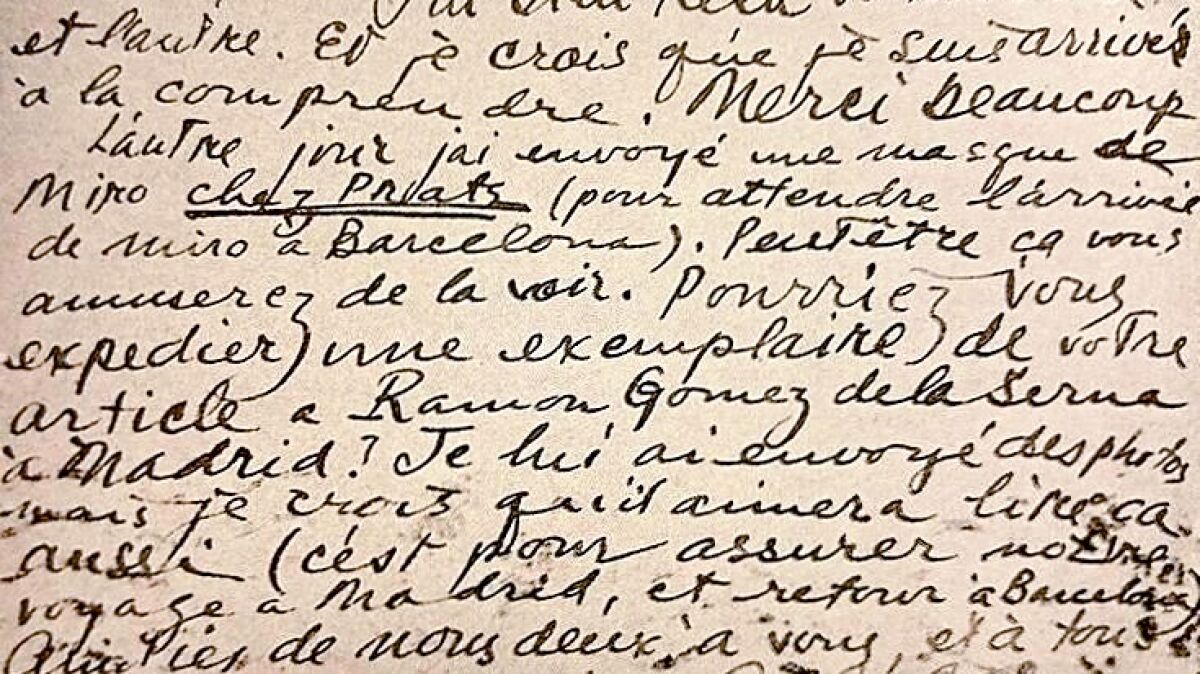 J'ai bien
et l'autre. Et je crois que je suis arrivés
à la comprendre. Merci beaucoup
L'autre jour j'ai envoyé une masque de
Miro chez Prats (pour attendre l'arrivée
de miro à Barcelona). Peutêtre ça vous
amuserez de la voir. Pourriez vous
expedier) une exemplaire) de votre
article a Ramon Gomez de la Serna
à Madrid? Je lui ai envoyé des photos
mais je crois qu'il aimera lire ça
aussi (c'est pour assurer notre
voyage à Madrid, et retour à Barcelona)
Amitiés de nous deux, à vous, et à tous